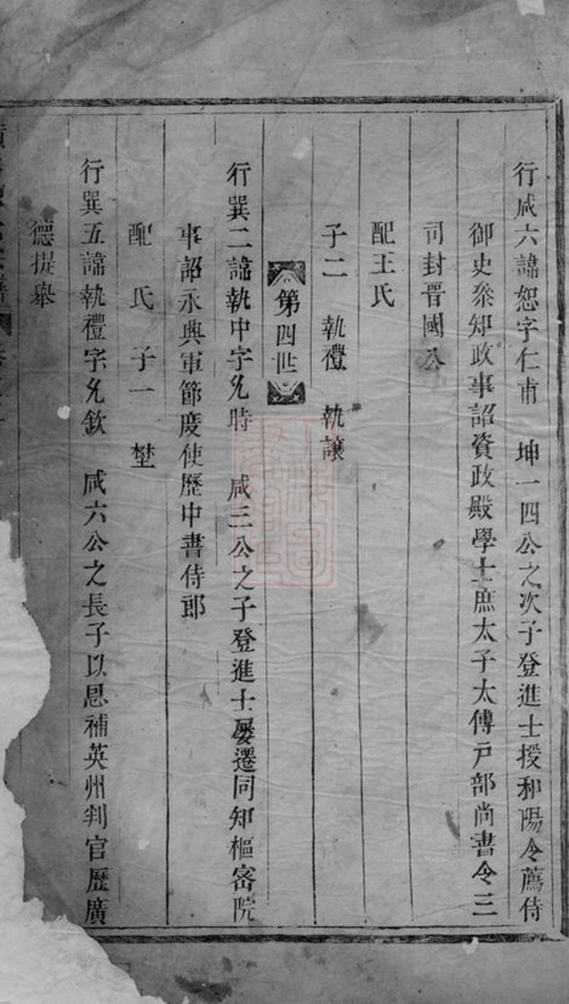 行咸六諱恕字仁甫 坤一四公之次子登進士授和陽令薦侍
御史叅知政事詔資政殿學士庶太子太傅戸部尚書令三
司封晉國公
配王氏
子二 執禮 執讓
第四世
行巽二諱執中字允時 咸三公之子登進士屡遷同知樞宻院
事詔永興軍節度使歷中書侍郎
配 氏 子一 埜
行巽五諱執禮字允欽 咸六公之長子以恩補英州判官歷廣
德提舉